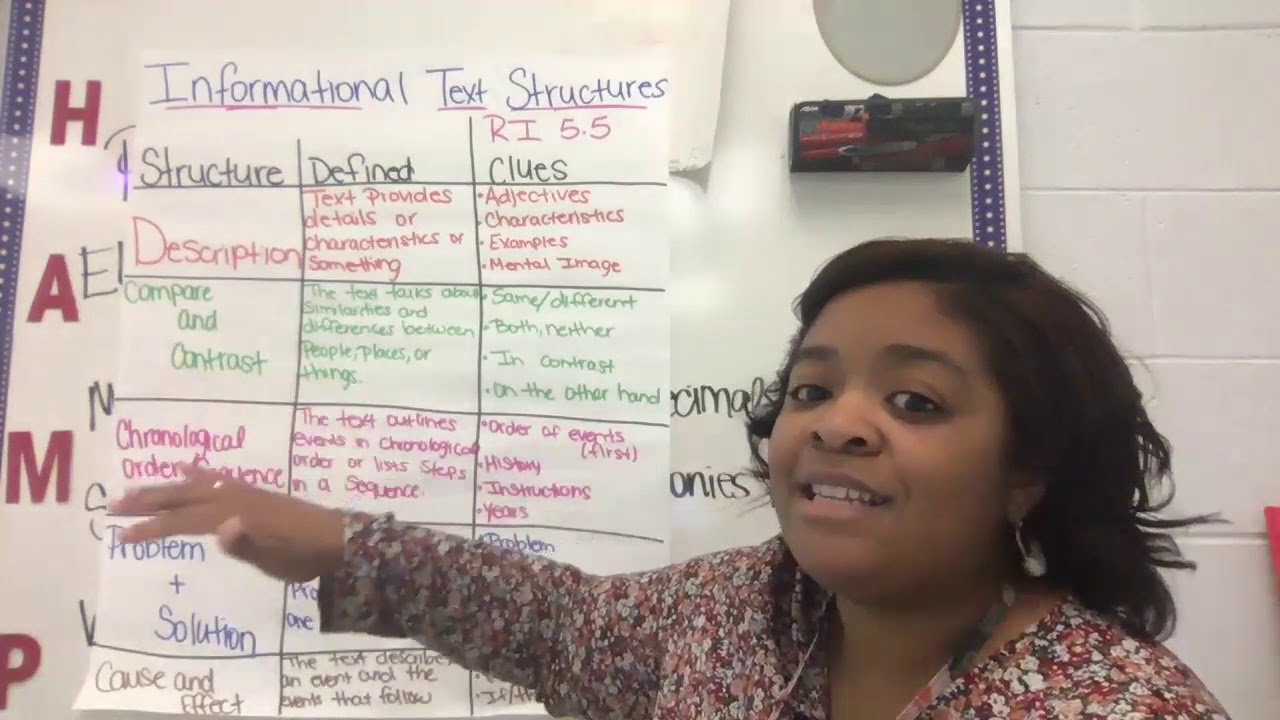 Informational Text Structures
RI 5.5
Structure
Defined
Clues
Description
Text Provides
details or
characteristics of
something
• Adjectives
• Characteristics
• Examples
• Mental Image
Compare
and
Contrast
The text talks about
similarities and
differences between
People, places, or
things.
• Same/different
• Both, neither
• In contrast
• On the other hand
Chronological
order
The text outlines
events in chronological
order or lists steps
in a sequence.
• Order of events
(first)
• History
• Instructions
• Years
Problem
+
Solution
one
Problem
Cause and
Effect
The text describes
an event and the
events that follow
H
A
M
P